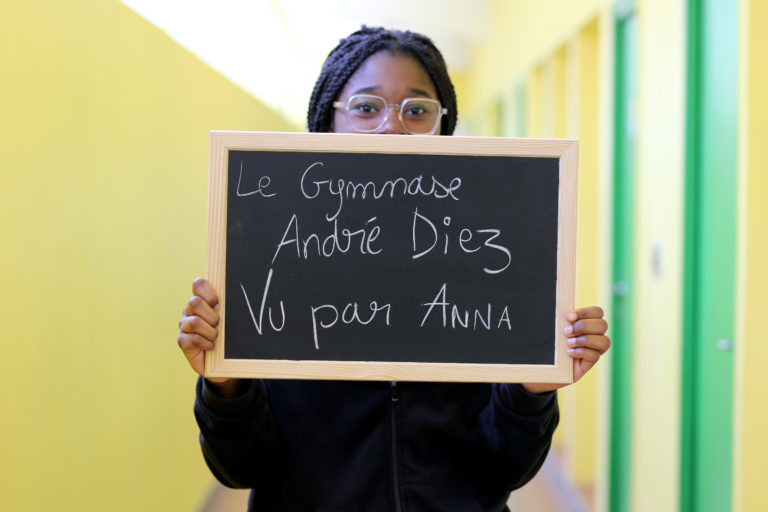 Le Gymnase
André Diez
Vu par Anna